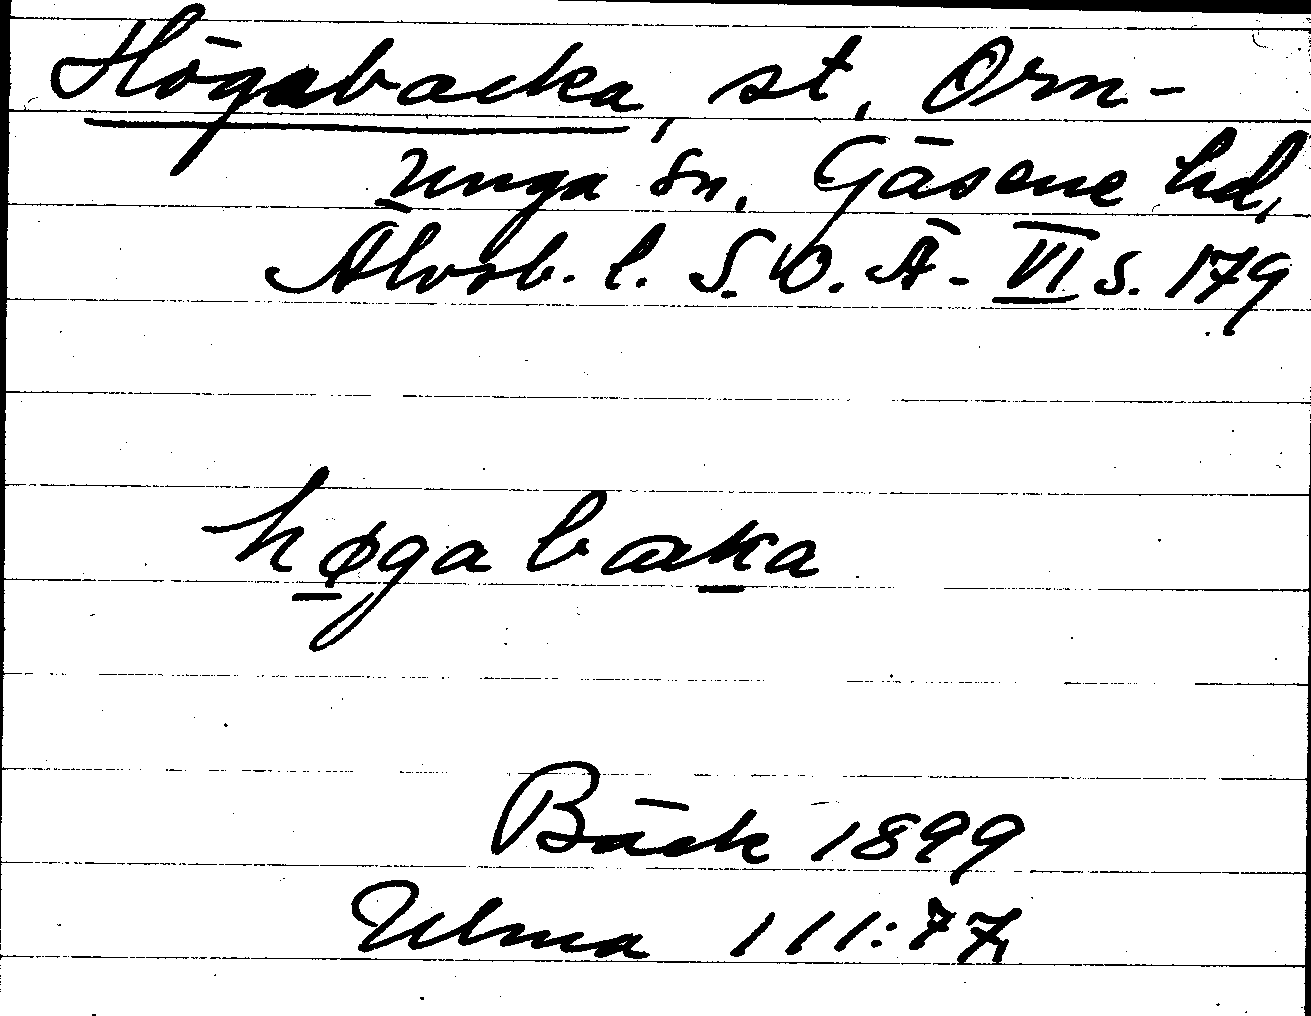 Högabacka, st, Orn-
unga sn, Gäsene hd,
Älvsb. l. S.O.Ä. VI s. 179
høgabaka
Bäck 1899
Ulma 111:77,